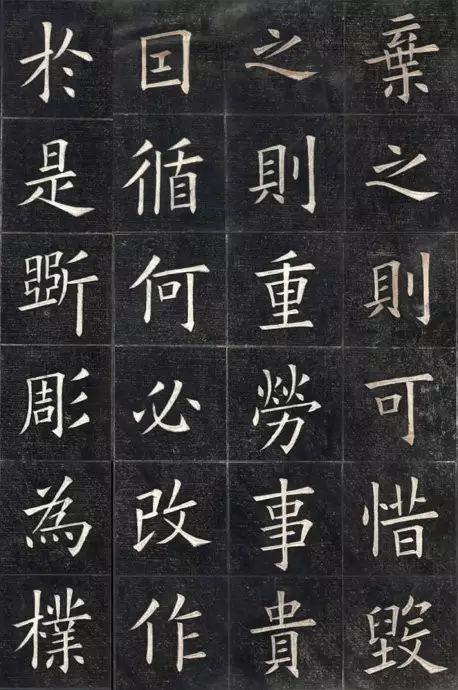 棄之則可惜毀
之則重勞事貴
囙循何必改作
於是斲彫為樸